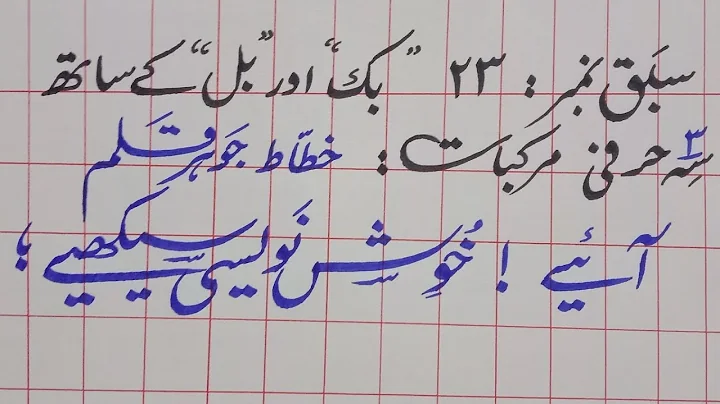 سبَق نمبر : ۲۳ "بک" اور "بل" کے ساتھ
سِہ ۳ حرفی مرکبات : خطّاط جَوہر قلَم
آئیے ! خُوش نَویسی سیکھیے ؛